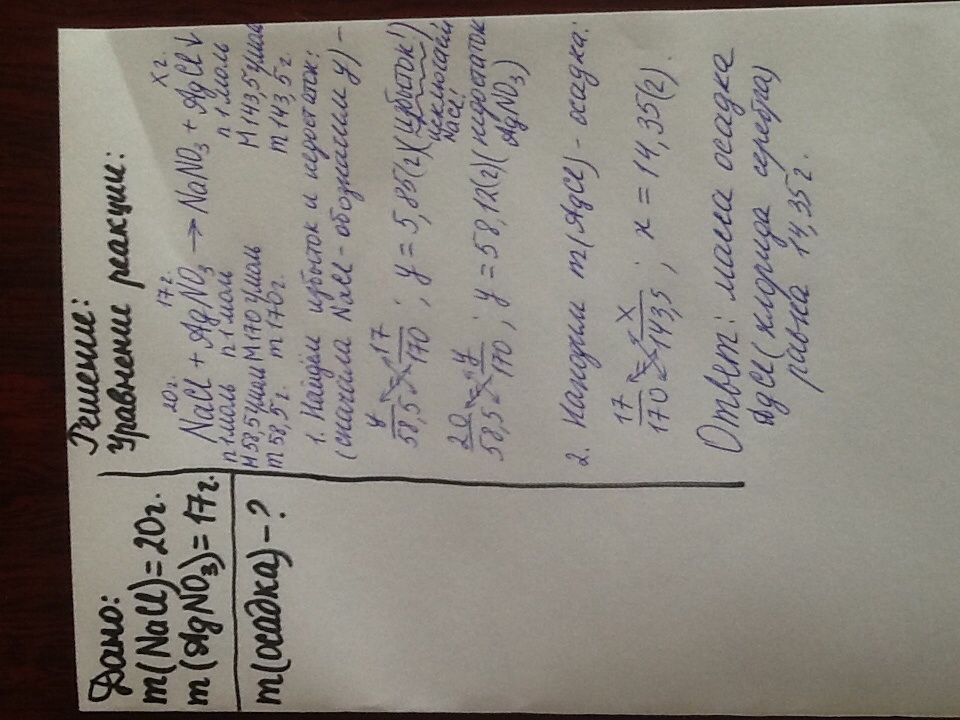 Дано:
m(NaCl)=20г.
m(AgNO3)=17г.
m(осадка)-?
Решение:
Уравнение реакции:
20г. 17г. xг.
NaCl + AgNO3 → NaNO3 + AgCl↓
n 1 моль n 1 моль n 1 моль
M 58,5 г/моль M 170 г/моль M 143,5 г/моль
m 58,5г. m 170г. m 143,5г.
1. Найдём избыток и недостаток:
(сначала NaCl - обозначим y) -
y/58,5 = 17/170; y = 5,85(г)(избыток!)
исключаем
NaCl!
20/58,5 = y/170; y = 58,12(г)(недостаток
AgNO3)
2. Находим m(AgCl) - осадка:
17/170 = x/143,5; x = 14,35(г).
Ответ: масса осадка
AgCl(хлорида серебра)
равна 14,35г.